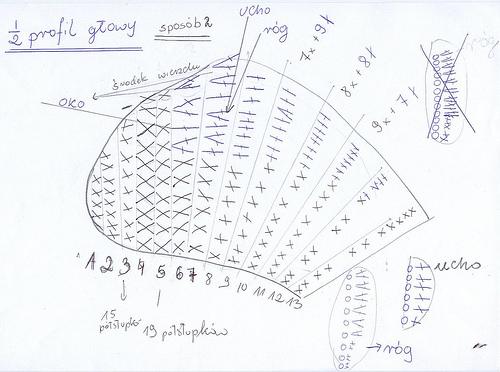 ½ profil głowy
sposób 2
ucho
róg
7x + 9†
8x + 8†
9x + 7†
róg
środek wierzchu
oko
1 2 3 4 5 6 7 8 9 10 11 12 13
15
półsłupków
19 półsłupków
ucho
→ róg